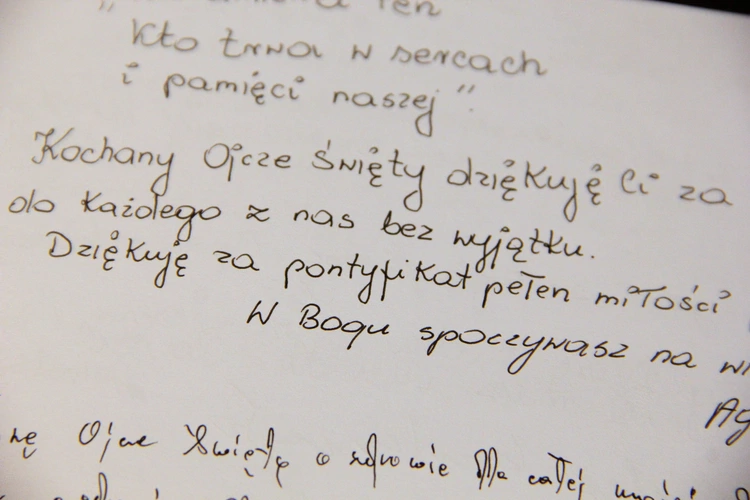 ten
Kto trwa w sercach
i pamięci naszej".
Kochany Ojcze Święty dziękuję Ci za
do każdego z nas bez wyjątku.
Dziękuję za pontyfikat pełen miłości
W Bogu spoczywasz na
Ojcze Święty o zdrowie dla całej